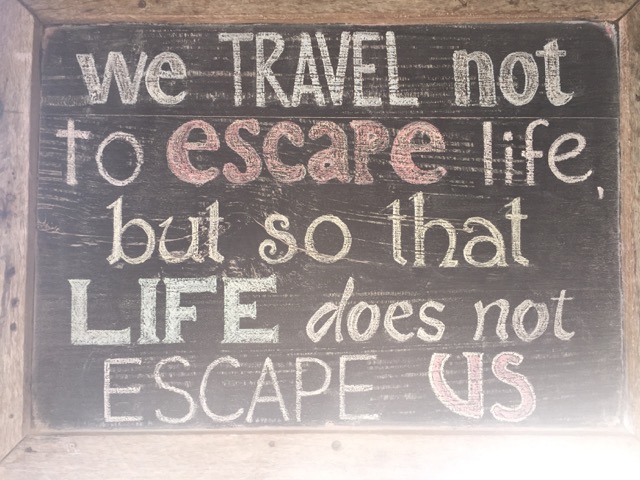 we TRAVEL not
to escape life,
but so that
LIFE does not
ESCAPE US